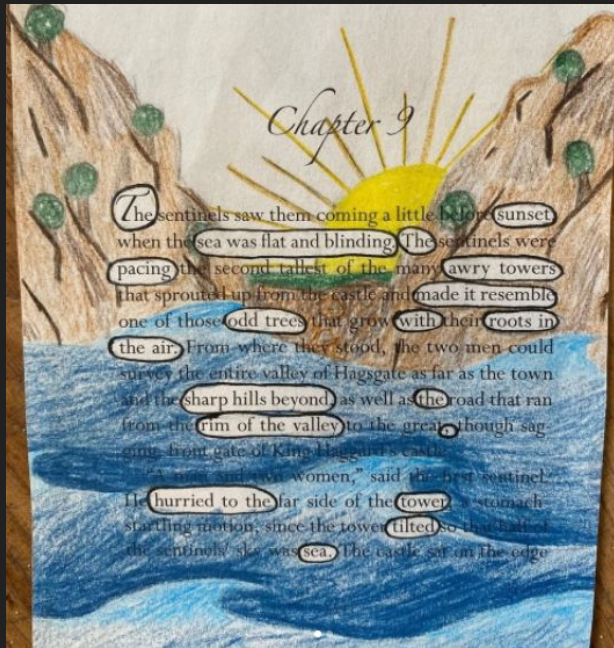 Chapter 9
The sentinels saw them coming a little before sunset,
when the sea was flat and blinding. The sentinels were
pacing the second tallest of the many awry towers
that sprouted up from the castle and made it resemble
one of those odd trees that grow with their roots in
the air. From where they stood, the two men could
survey the entire valley of Hagsgate as far as the town
and the sharp hills beyond, as well as the road that ran
from the rim of the valley to the great, though sag-
ging, front gate of King Haggard's castle.
"A man and two women," said the first sentinel.
He hurried to the far side of the tower, a stomach-
startling motion, since the tower tilted so that half of
the sentinels' sky was sea. The castle sat on the edge